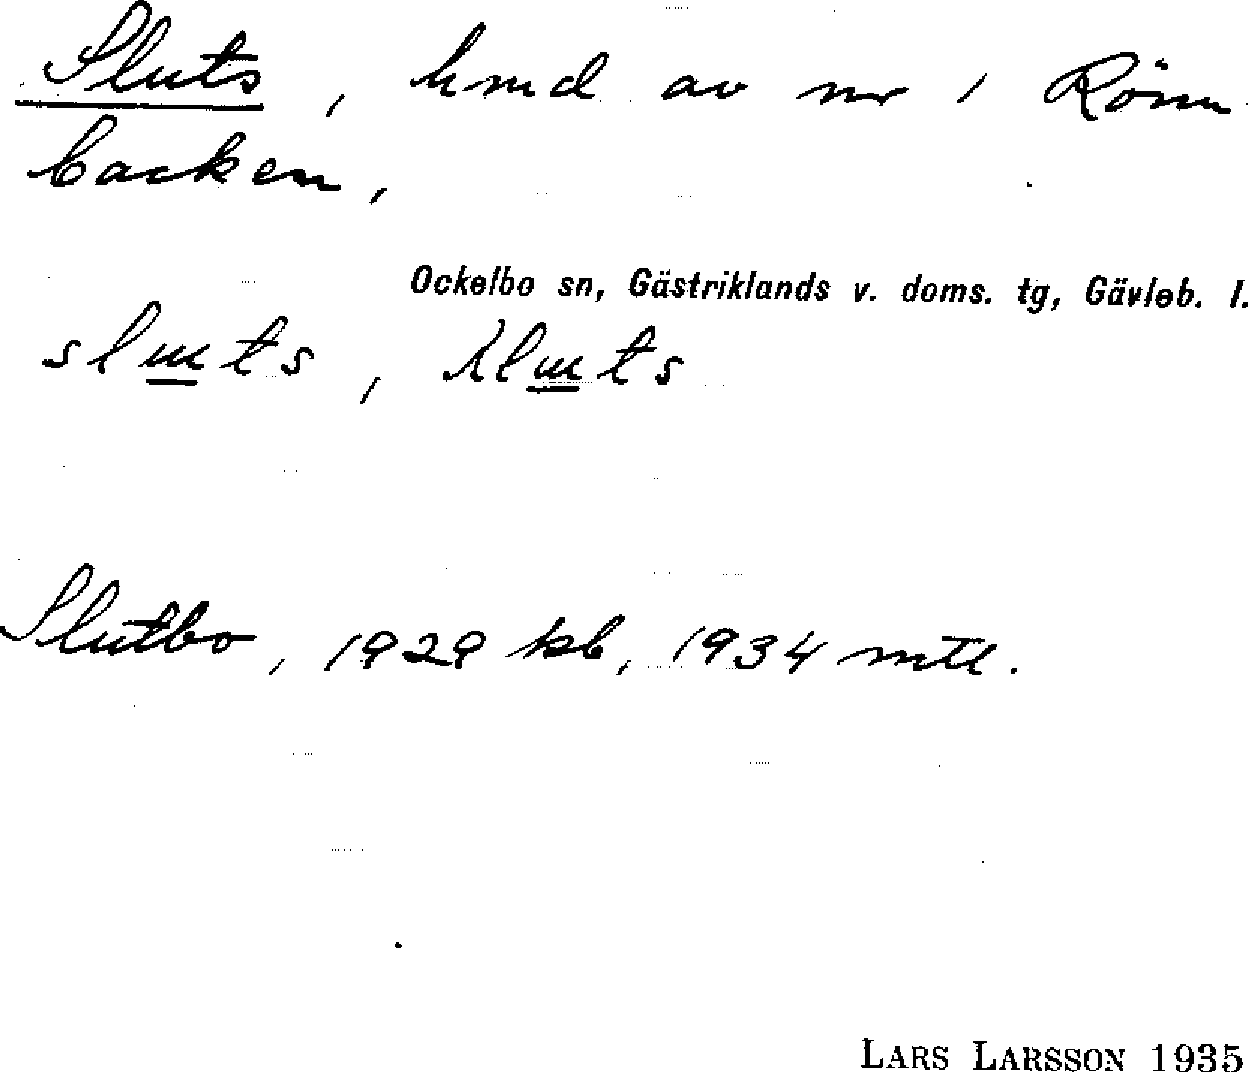 Sluts, hmd av nr 1 Rönn
backen,
Ockelbo sn, Gästriklands v. doms. tg, Gävleb. l.
Slutbo, 1929 kb, 1934 mtl.
LARS LARSSON 1935